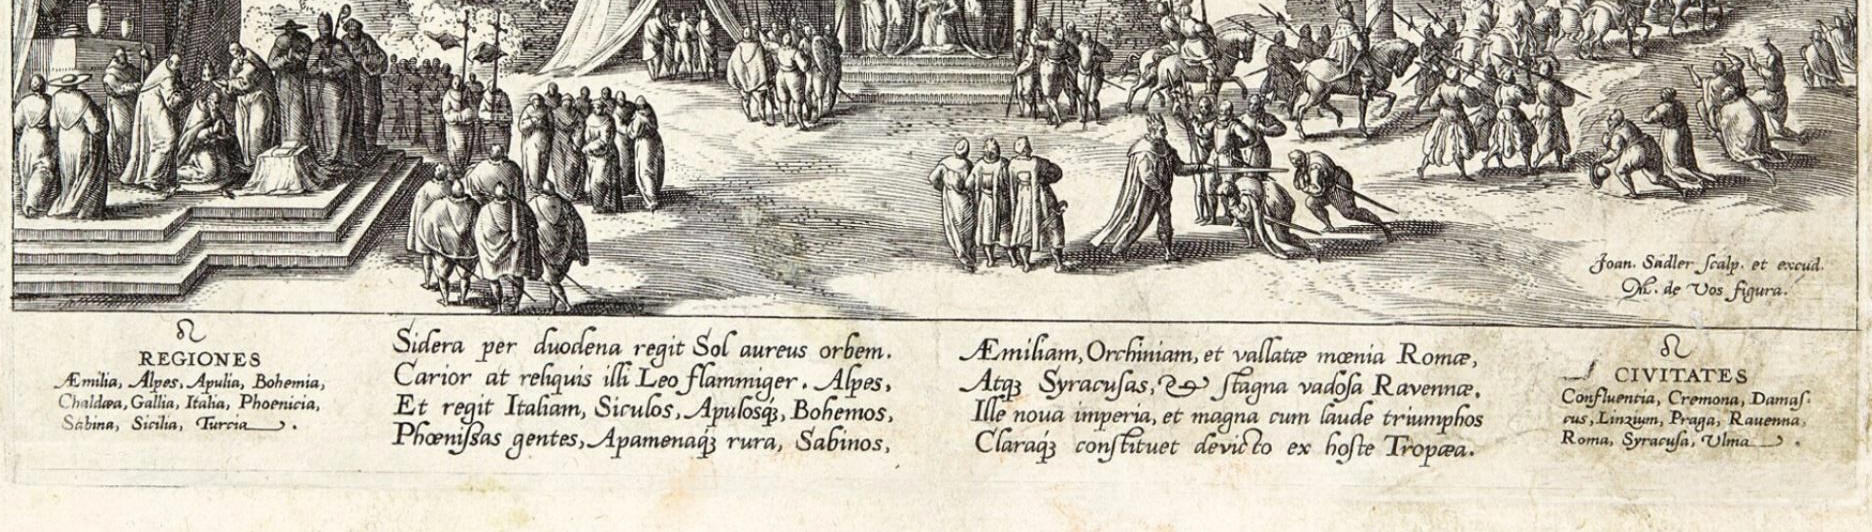 Joan. Sadler scalp. et excud.
M. de Vos figura.
♌
REGIONES
Æmilia, Alpes, Apulia, Bohemia,
Chaldæa, Gallia, Italia, Phoenicia,
Sabina, Sicilia, Turcia.
Sidera per duodena regit Sol aureus orbem.
Carior at reliquis illi Leo flammiger. Alpes,
Et regit Italiam, Siculos, Apulosqꝫ, Bohemos,
Phœnissas gentes, Apamenaqꝫ rura, Sabinos,
Æmiliam, Orchiniam, et vallatæ mœnia Romæ,
Atqꝫ Syracusas, & stagna vadosa Ravennæ.
Ille noua imperia, et magna cum laude triumphos
Claraqꝫ constituet devicto ex hoste Tropæa.
♌
CIVITATES
Confluentia, Cremona, Damas:
cus, Linzium, Praga, Rauenna,
Roma, Syracusa, Vlma.